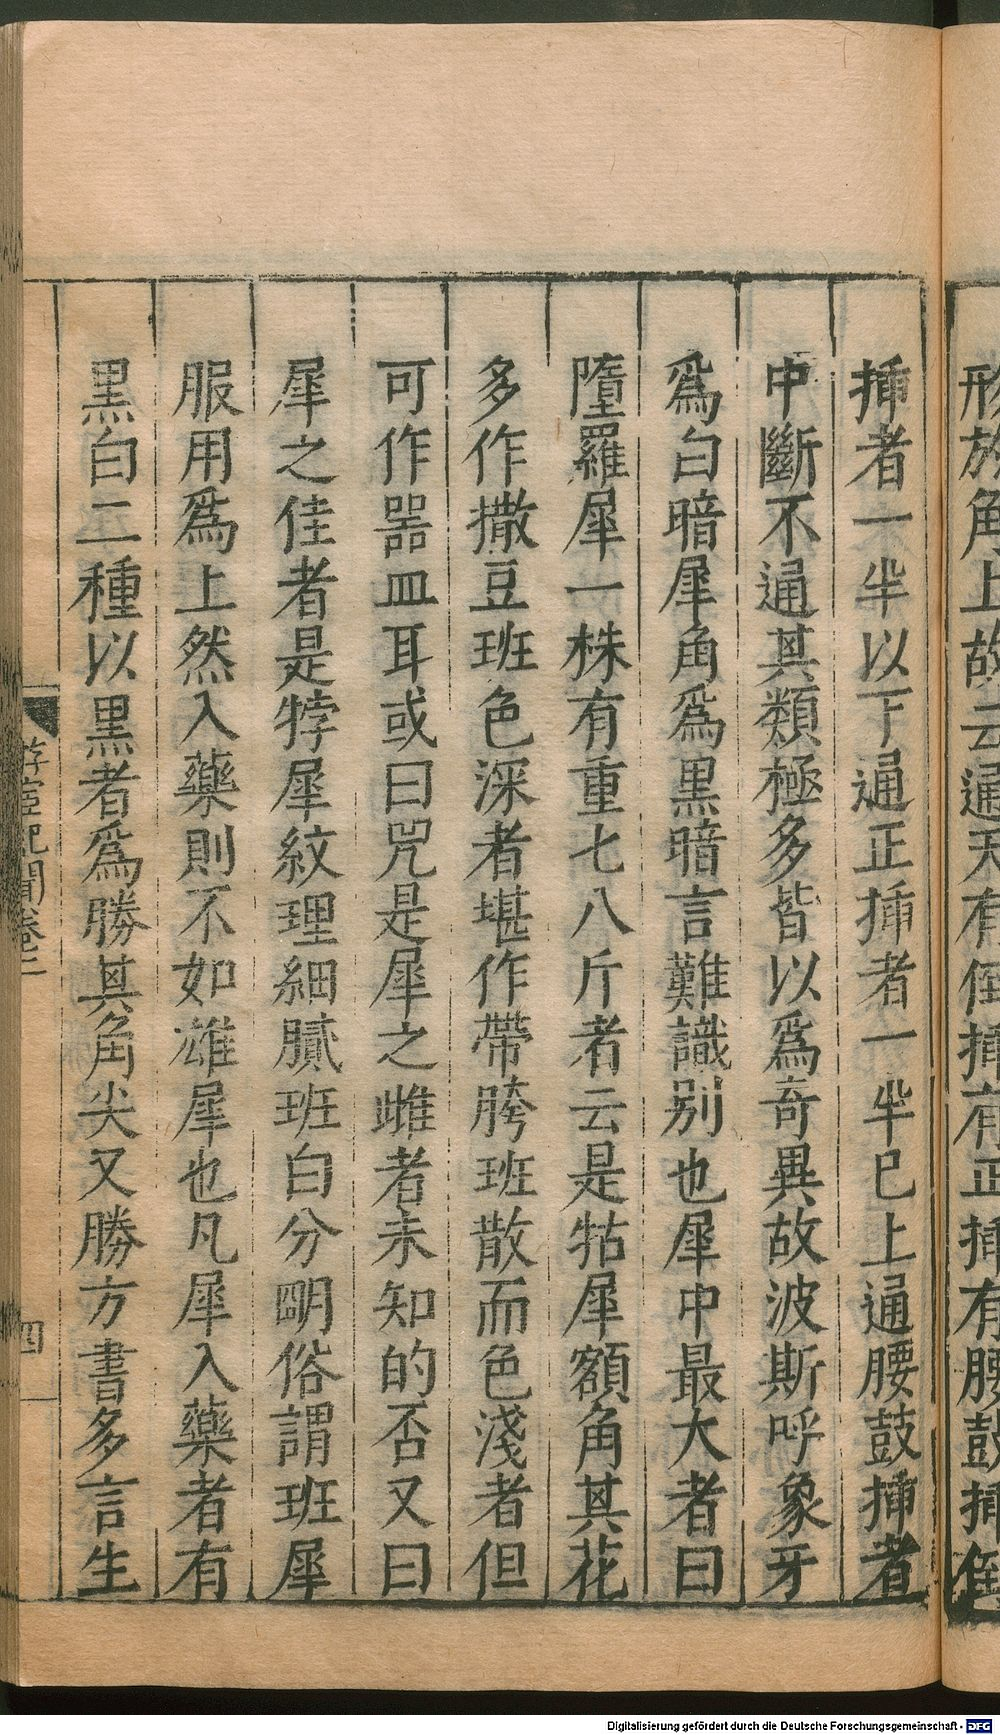 形於角上故云通天有倒揷有正揷有腰鼓揷倒
揷者一半以下通正揷者一半已上通腰鼓揷者
中斷不通其類極多皆以爲奇異故波斯呼象牙
爲白暗犀角爲黒暗言難識别也犀中最大者曰
墮羅犀一株有重七八斤者云是牯犀額角其花
多作撒豆班色深者堪作帶胯班散而色淺者但
可作噐皿耳或曰兕是犀之雌者未知的否又曰
犀之佳者是牸犀紋理細膩班白分明俗謂班犀
服用爲上然入藥則不如雄犀也凡犀入藥者有
黒白二種以黒者爲勝其角尖又勝方書多言生
游宦紀聞卷二
四
Digitalisierung gefördert durch die Deutsche Forschungsgemeinschaft - DFG